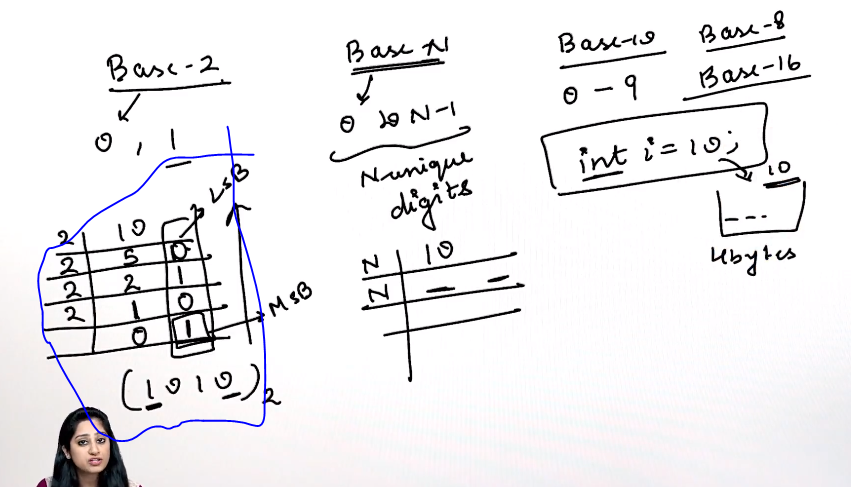 Base-2
0 , 1
LSB
2 10
2 5 0
2 2 1
2 1 0
0 1
MSB
(1010)2
Base-N
0 to N-1
N-unique
digits
N 10
N
Base-10
0 - 9
Base-8
Base-16
int i = 10;
10
4bytes